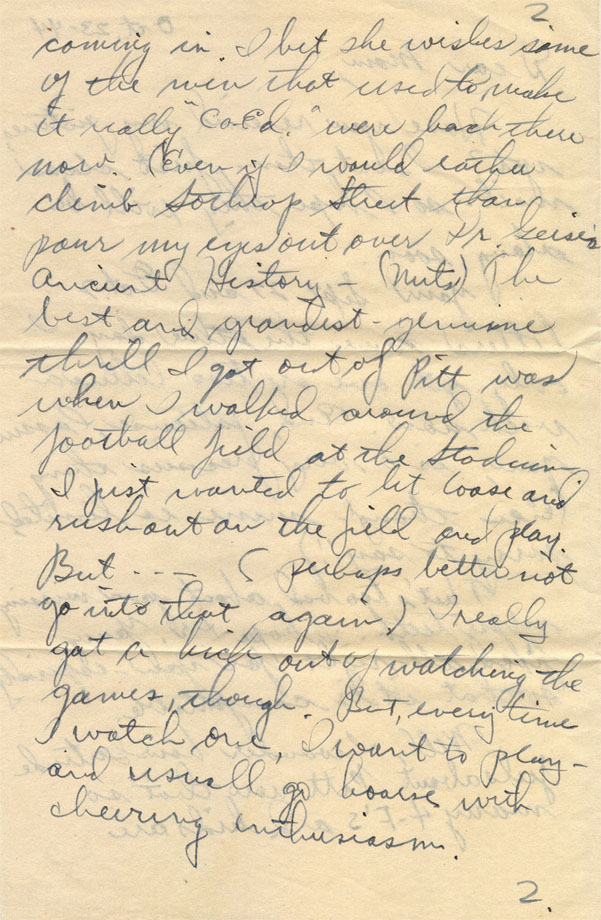 2
coming in. I bet she wishes some
of the men that used to make
it really "CoEd." were back there
now. (Even if I would rather
climb Lothrop Street than
pour my eyes out over Dr. Geise's
Ancient History - (Nuts) The
best and grandest - genuine
thrill I got out of Pitt was
when I walked around the
football field at the Stadium.
I just wanted to let loose and
rush out on the field and play.
But - - - (perhaps better not
go into that again.) I really
got a kick out of watching the
games, though. But, every time
I watch one, I want to play -
and usuall go hoarse with
cheering enthusiasm.
2.